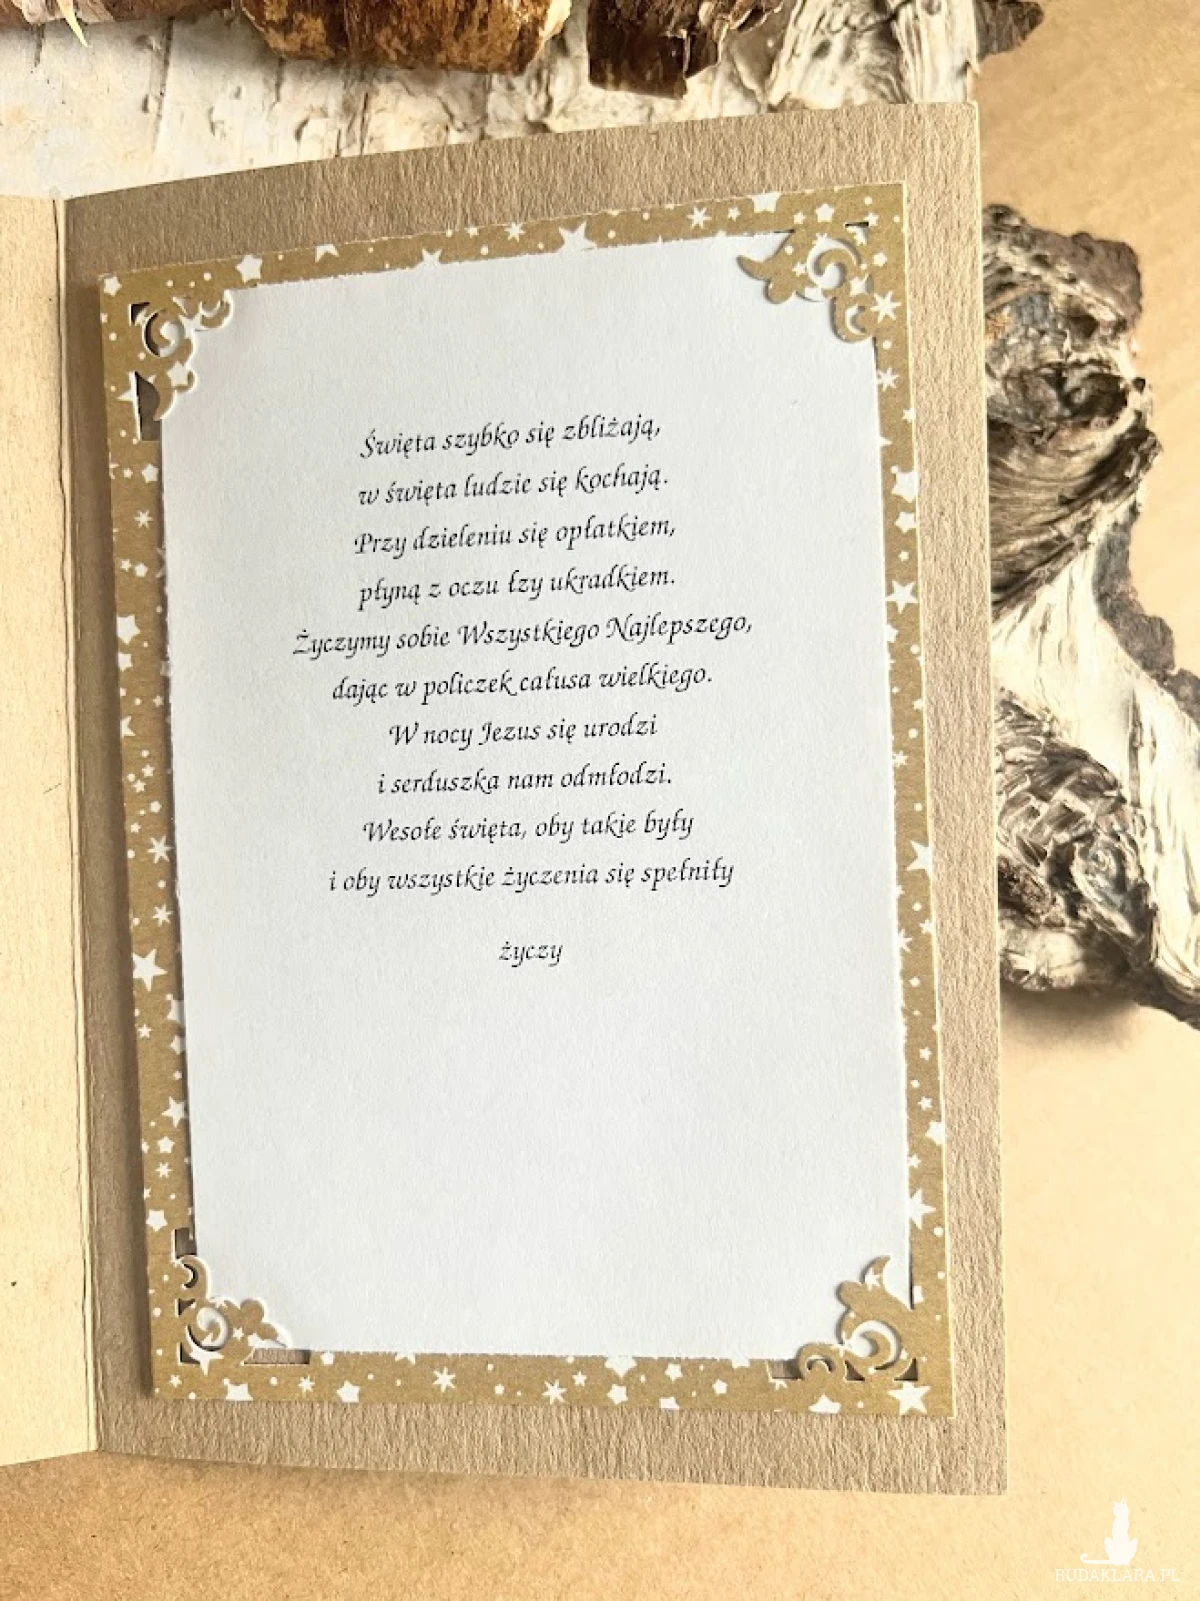 Święta szybko się zbliżają,
w święta ludzie się kochają.
Przy dzieleniu się opłatkiem,
płyną z oczu łzy ukradkiem.
Życzymy sobie Wszystkiego Najlepszego,
dając w policzek całusa wielkiego.
W nocy Jezus się urodzi
i serduszka nam odmłodzi.
Wesołe święta, oby takie były
i oby wszystkie życzenia się spełniły
życzy
RUDAKLARA.PL